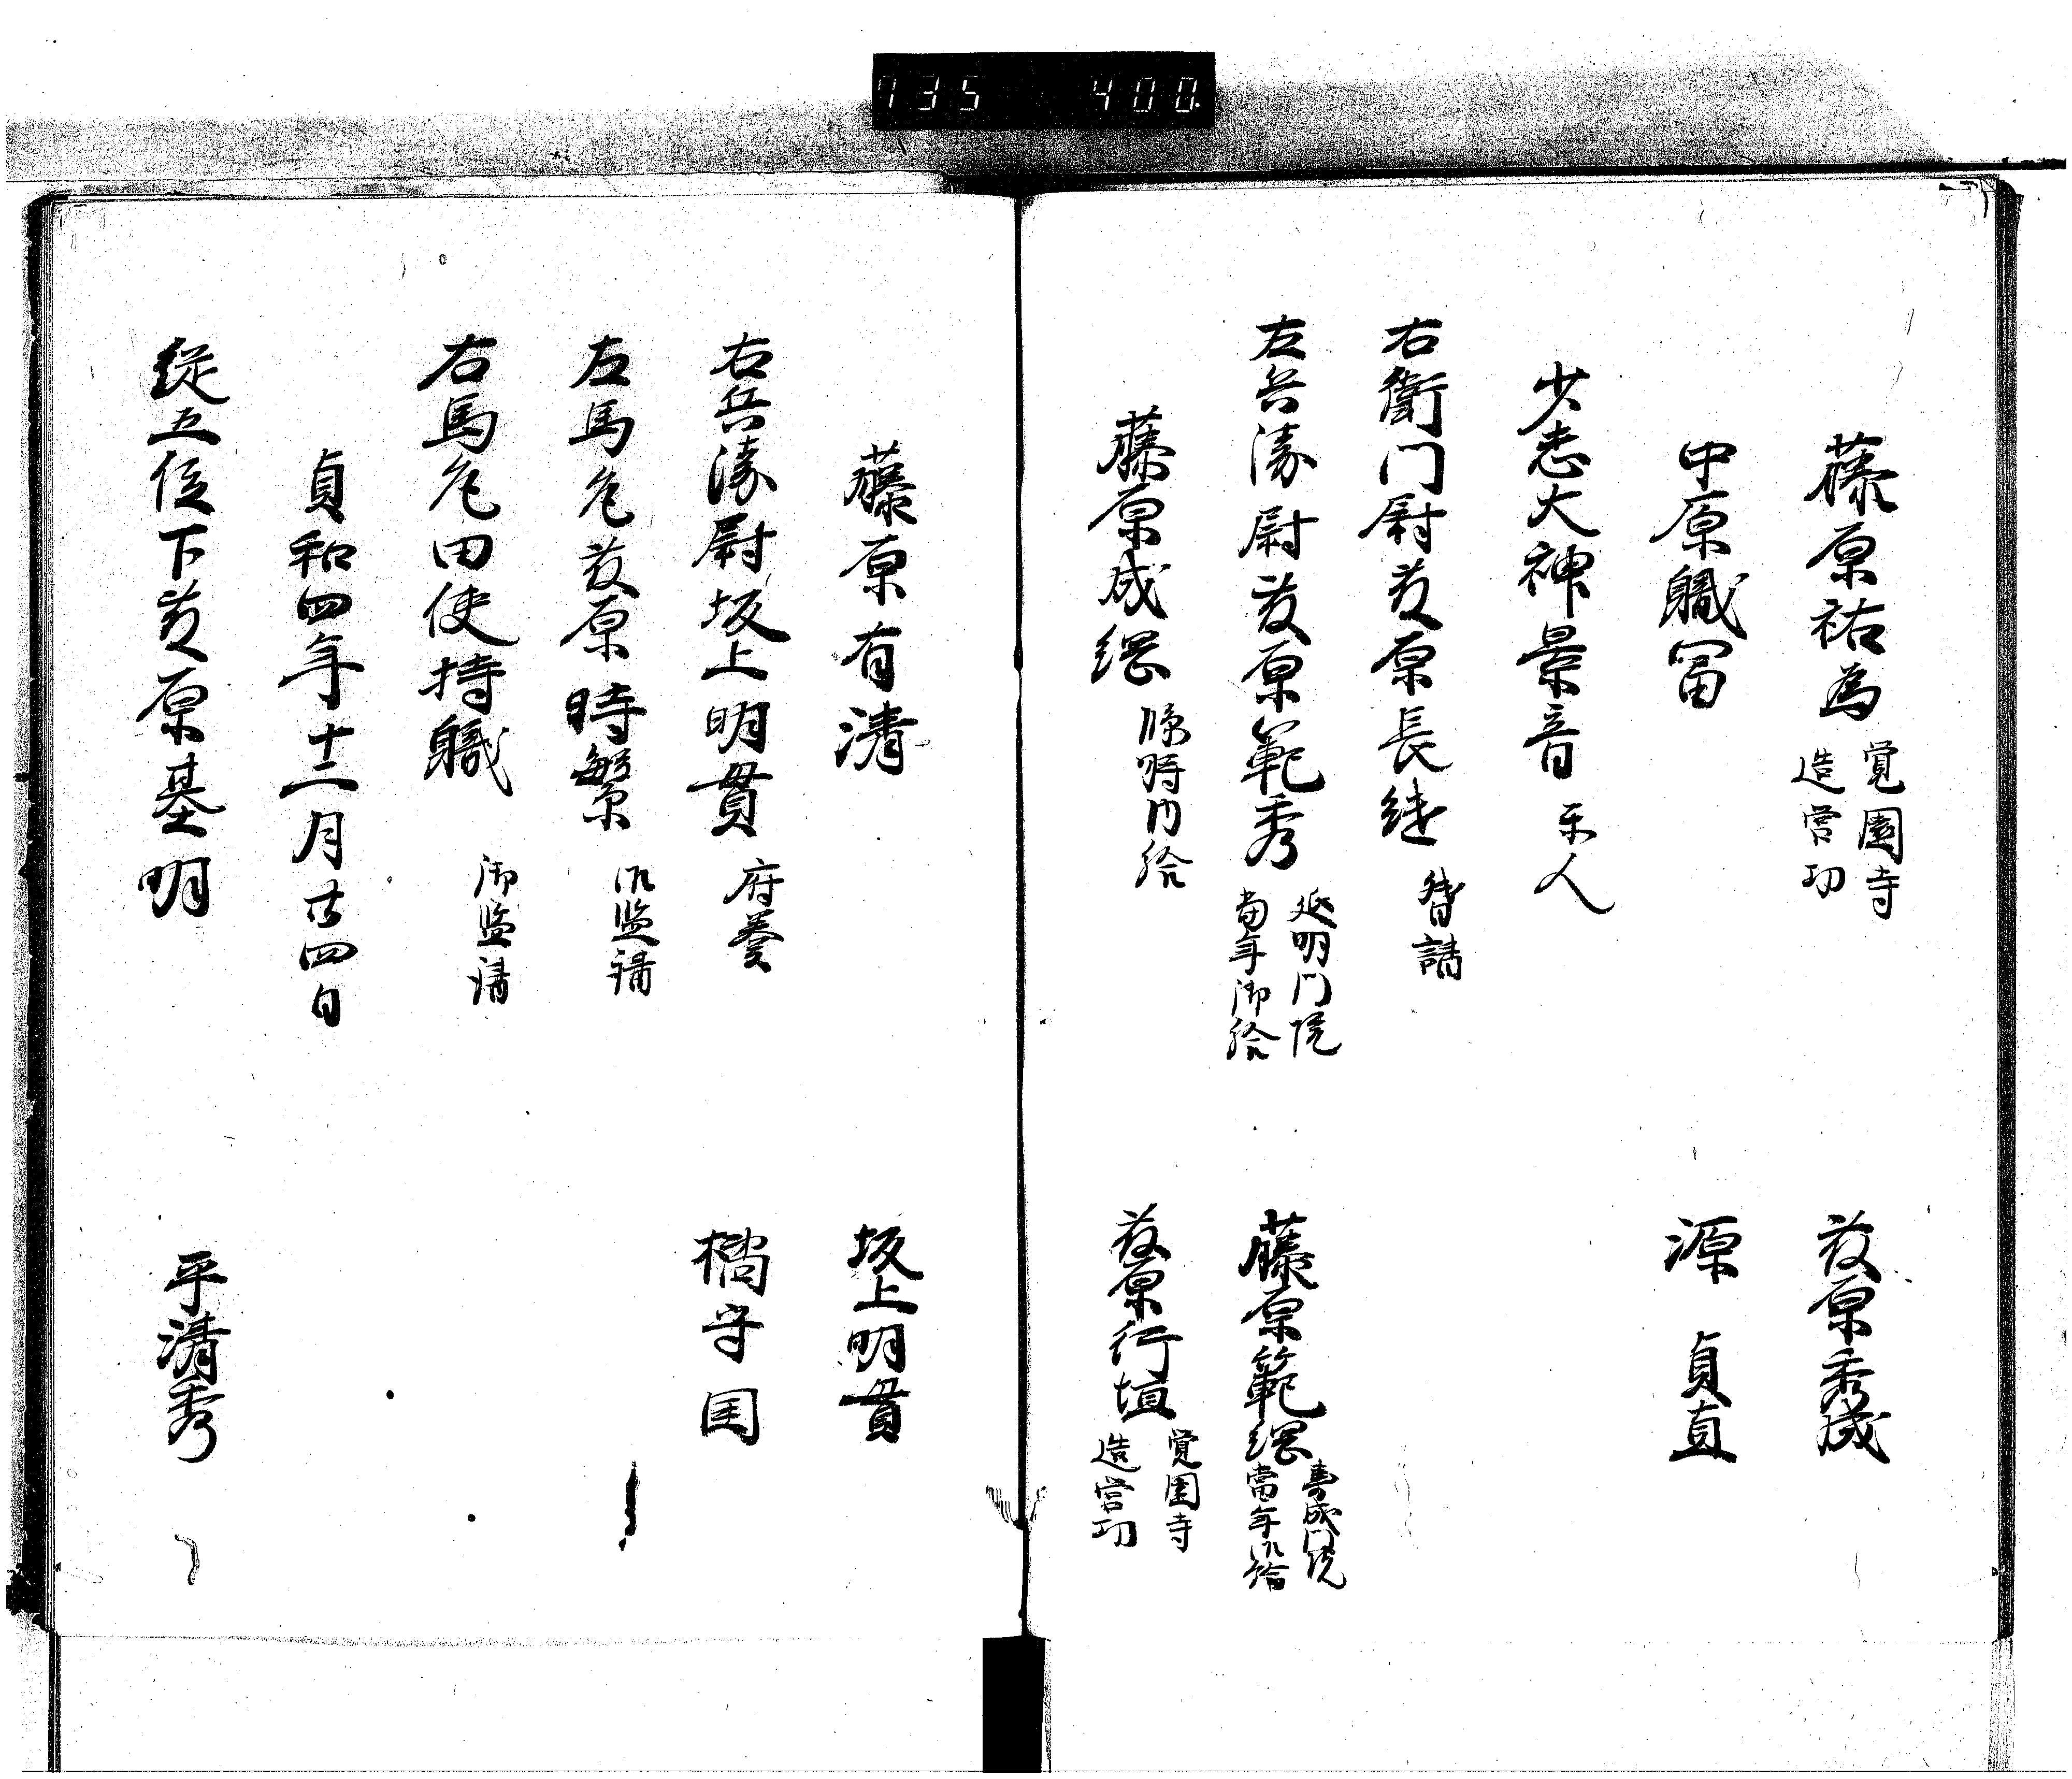 735 400
藤原祐為 覚園寺造営功 藤原秀成
中原職冨 源貞直
少志大神景音 楽人
右衛門尉藤原長継 督請
左兵衛尉藤原範秀 延明門院当年御給 藤原範綱 寿成門院當年御給
藤原成綱 臨時内給 藤原行垣 覚園寺造営功
藤原有清 坂上明貫
右兵衛尉坂上明貫 府奏 橘守国
左馬允藤原時繁 御監請
右馬允田使持職 御監請
貞和四年十二月廿四日
従五位下藤原基明 平清秀